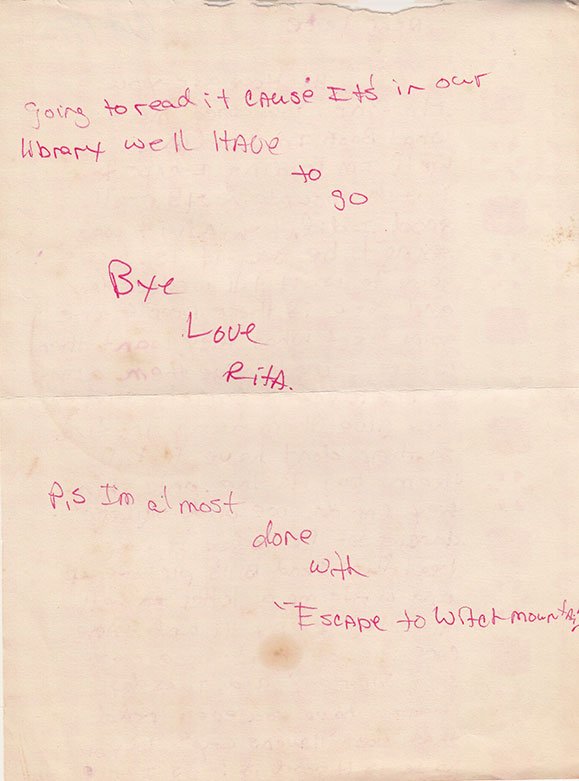 going to read it cAUSE Its' in our
library well HAVE
to
go
Bye
Love
RitA.
P,S I'm a'lmost
done
with
"EscApe to Witchmountain